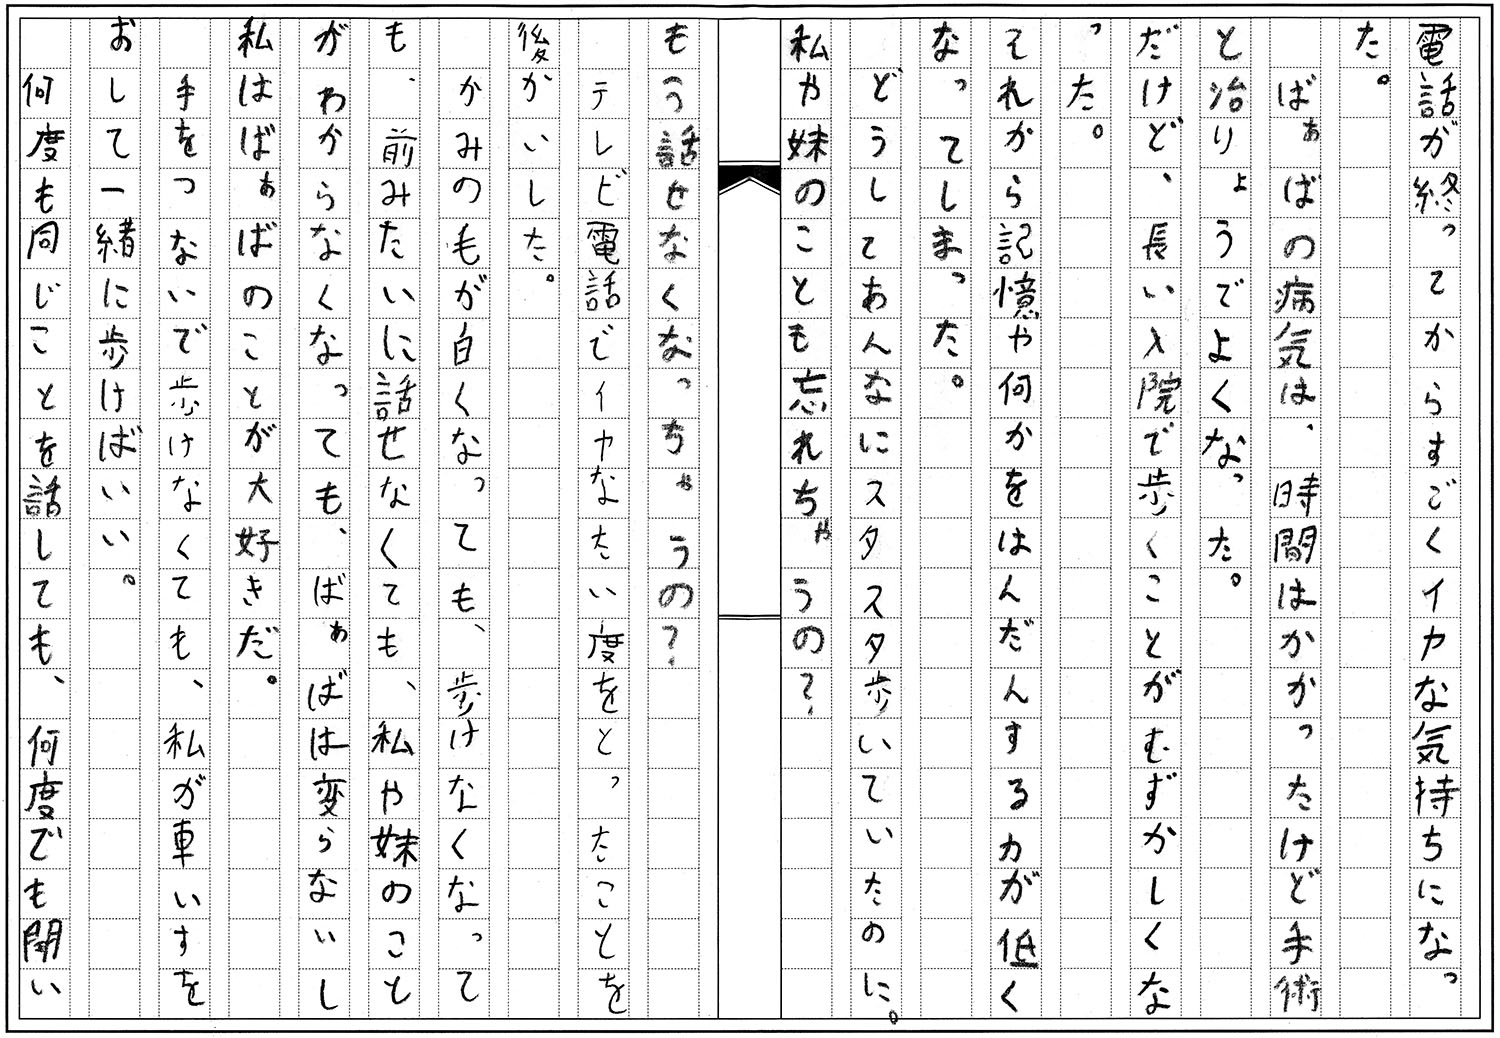 電話が終ってからすごくイヤな気持ちになっ
た。
　ばぁばの病気は、時間はかかったけど手術
と治りょうでよくなった。
だけど、長い入院で歩くことがむずかしくな
った。
それから記憶や何かをはんだんする力が低く
なってしまった。
　どうしてあんなにスタスタ歩いていたのに。
私や妹のことも忘れちゃうの？
もう話せなくなっちゃうの？
　テレビ電話でイヤなたい度をとったことを
後かいした。
　かみの毛が白くなっても、歩けなくなって
も、前みたいに話せなくても、私や妹のこと
がわからなくなっても、ばぁばは変らないし
私はばぁばのことが大好きだ。
　手をつないで歩けなくても、私が車いすを
おして一緒に歩けばいい。
　何度も同じことを話しても、何度でも聞い